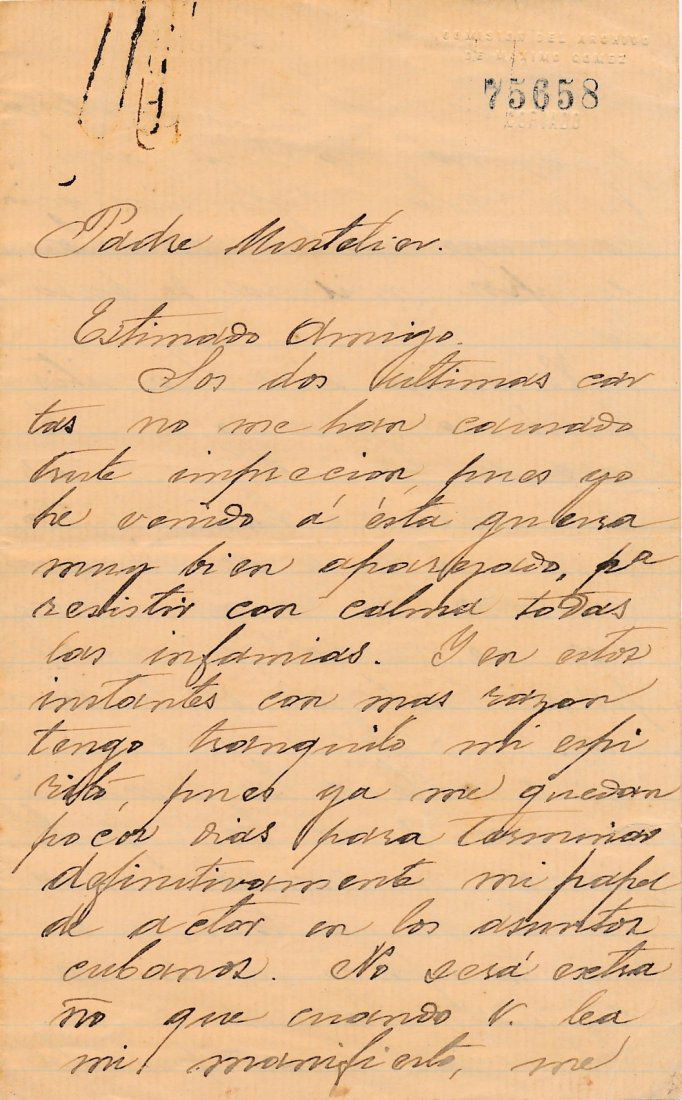 COMISION DEL ARCHIVO
DE MAXIMO GOMEZ
75658
COPIADO
Padre Montelier.
Estimado Amigo.
Los dos ultimas car
tas no me han causado
triste imprecion, pues yo
he venido á ésta guerra
muy bien aparejado, pa
resistir con calma todas
las infamias. Y en estos
instantes con mas razon
tengo tranquilo mi espi
ritó, pues ya me quedan
pocos dias para terminar
definitivamente mi papel
de actor en los asuntos
cubanos. No será extra
ño que cuando V. lea
mi manifiesto, me